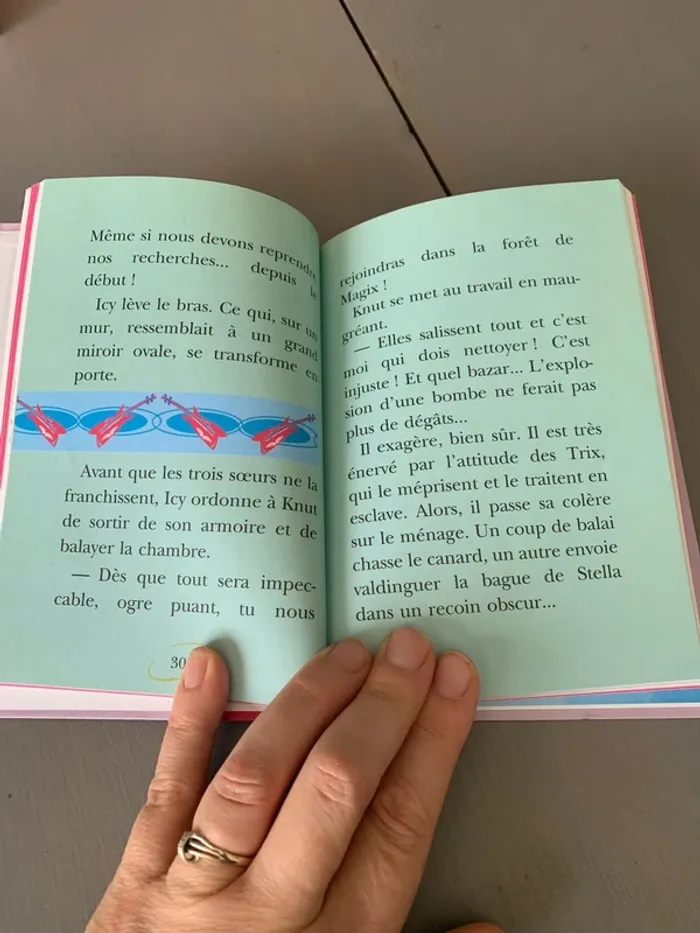 Même si nous devons reprendre
nos recherches... depuis le
début !
Icy lève le bras. Ce qui, sur un
mur, ressemblait à un grand
miroir ovale, se transforme en
porte.
Avant que les trois sœurs ne la
franchissent, Icy ordonne à Knut
de sortir de son armoire et de
balayer la chambre.
— Dès que tout sera impec-
cable, ogre puant, tu nous
30
rejoindras dans la forêt de
Magix !
Knut se met au travail en mau-
gréant.
— Elles salissent tout et c'est
moi qui dois nettoyer ! C'est
injuste ! Et quel bazar... L'explo-
sion d'une bombe ne ferait pas
plus de dégâts...
Il exagère, bien sûr. Il est très
énervé par l'attitude des Trix,
qui le méprisent et le traitent en
esclave. Alors, il passe sa colère
sur le ménage. Un coup de balai
chasse le canard, un autre envoie
valdinguer la bague de Stella
dans un recoin obscur...